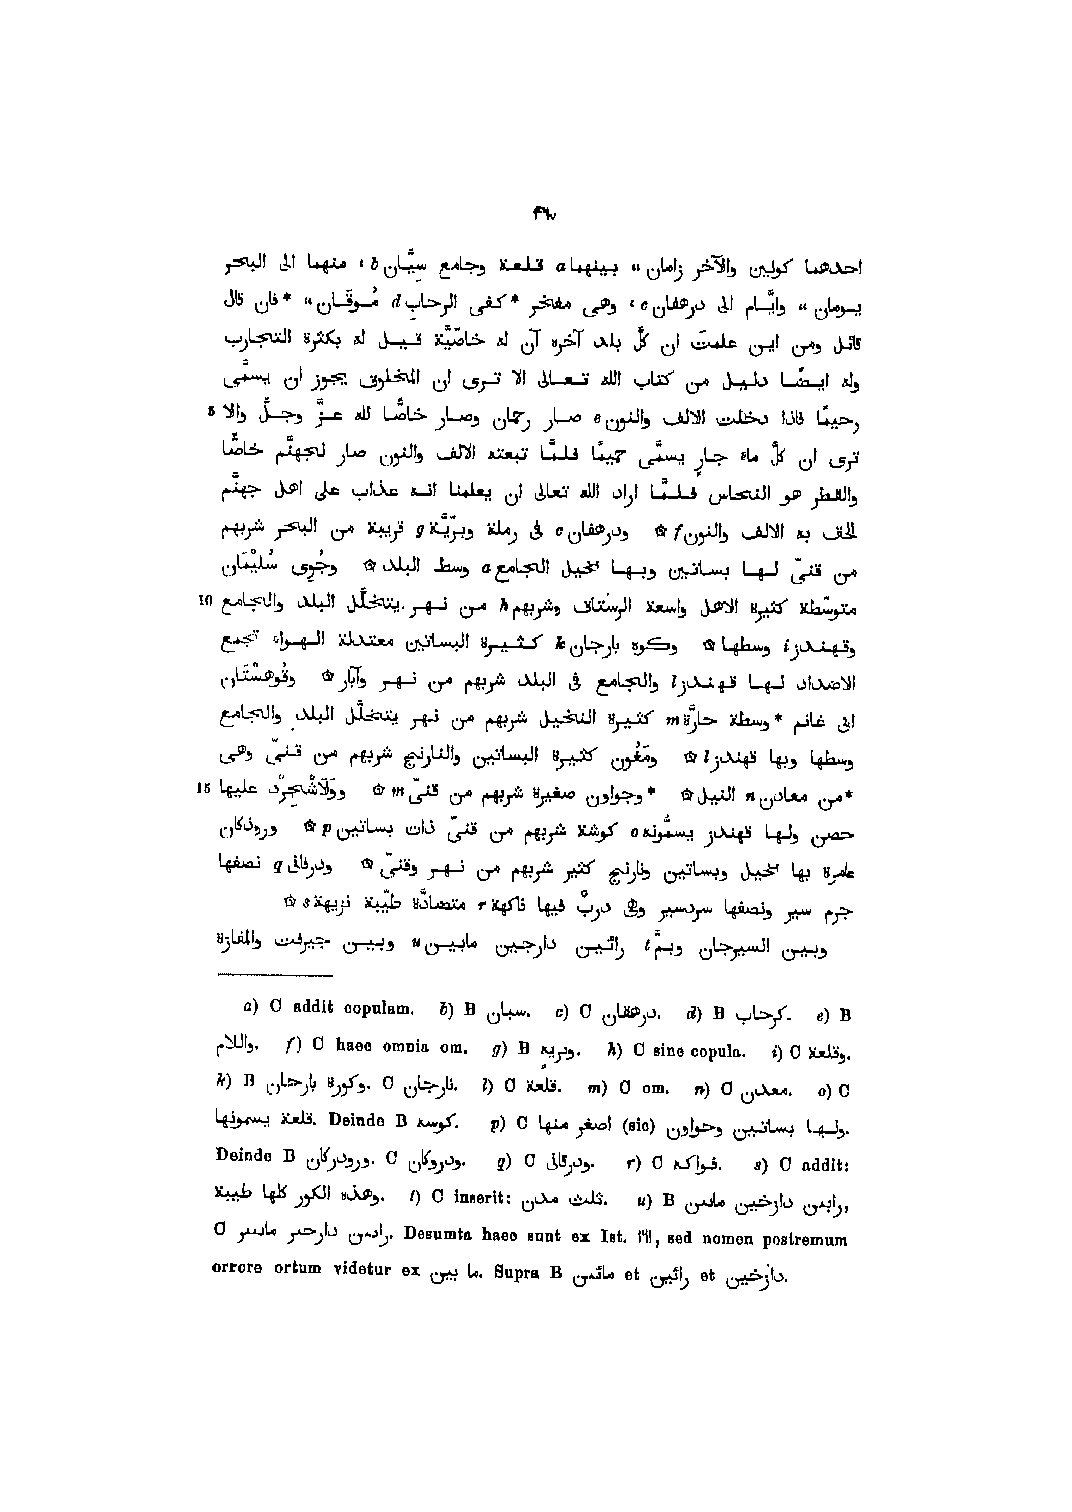 ٤٦٧
احدهما كولين والآخر زامان،، بينهما a قلعة وجامع سِيَّان b، منهما الى البحر
يومان،، وايَّام الى درهفان c، وهى مفخر *كفى الرحاب d مُوقَان،، *فان قال
قائل ومن اين علمتَ ان كلَّ بلد آخره آن له خاصّيَّة قيل له بكثرة التجارب
وله ايضًا دليل من كتاب الله تعالى الا ترى ان المخلوق يجوز ان يسمَّى
5 رحيمًا فاذا دخلت الالف والنون e صار رحمان وصار خاصًّا لله عزَّ وجلَّ والا
ترى ان كلَّ ماء جارٍ يسمَّى حميمًا فلمَّا تبعته الالف والنون صار لجهنَّم خاصًّا
والقطر هو النحاس فلمَّا اراد الله تعالى ان يعلمنا انه عذاب على اهل جهنَّم
الحق به الالف والنون f ۞ ودرهفان c فى رملة وبرّيَّة g قريبة من البحر شربهم
من قنىّ لها بساتين وبها نخيل الجامع a وسط البلد ۞ وجُوى سُلَيْمَان
10 متوسّطة كثيرة الاهل واسعة الرستاق وشربهم h من نهر يتخلَّل البلد والجامع
وقهندز i وسطها ۞ وكوه بارجان k كثيرة البساتين معتدلة الهواء تجمع
الاضداد لها قهندز l والجامع فى البلد شربهم من نهر وآبار ۞ وقُوهِسْتَان
ابى غانم *وسطة حارَّة m كثيرة النخيل شربهم من نهر يتخلَّل البلد والجامع
وسطها وبها قهندز l ۞ ومَغُون كثيرة البساتين والنارنج شربهم من قنىّ وهى
15 *من معادن n النيل ۞ *وجواون صغيرة شربهم من قنىّ m ۞ ووَلَاشْجِرْد عليها
حصن ولها قهندز يسمُّونه o كوشة شربهم من قنىّ ذات بساتين p ۞ ورودكان
عامرة بها نخيل وبساتين ونارنج كثير شربهم من نهر وقنىّ ۞ ودرفانى q نصفها
جرم سير ونصفها سردسير وفى دربٌ فيها فاكهة r متضادَّة طيّبة نزيهة s ۞
وبين السيرجان وبمَّ t رائين دارجين مابين u وبين جيرفت والمفازة
a) C addit copulam. b) B سبان. c) C درهقان. d) B كرحاب. e) B
واللام. f) C haec omnia om. g) B وبريه. h) C sine copula. i) C وقلعة.
k) B وكورة بارحان. C نارجان. l) C قلعة. m) C om. n) C معدن. o) C
قلعة يسمونها. Deinde B كوسه. p) C ولها بساتين وحواون (sic) اصغر منها.
Deinde B ورودركان. C ودروكان. q) C ودرقانى. r) C فواكه. s) C addit:
وهذه الكور كلها طيبة. t) C inserit: ثلث مدن. u) B رابىن دارخين ماىىن,
C راىىن دارحىر ماىىىر. Desumta haec sunt ex Ist. ١٦١, sed nomen postremum
errore ortum videtur ex ما بين. Supra B مائىن et رائين et دارخين.